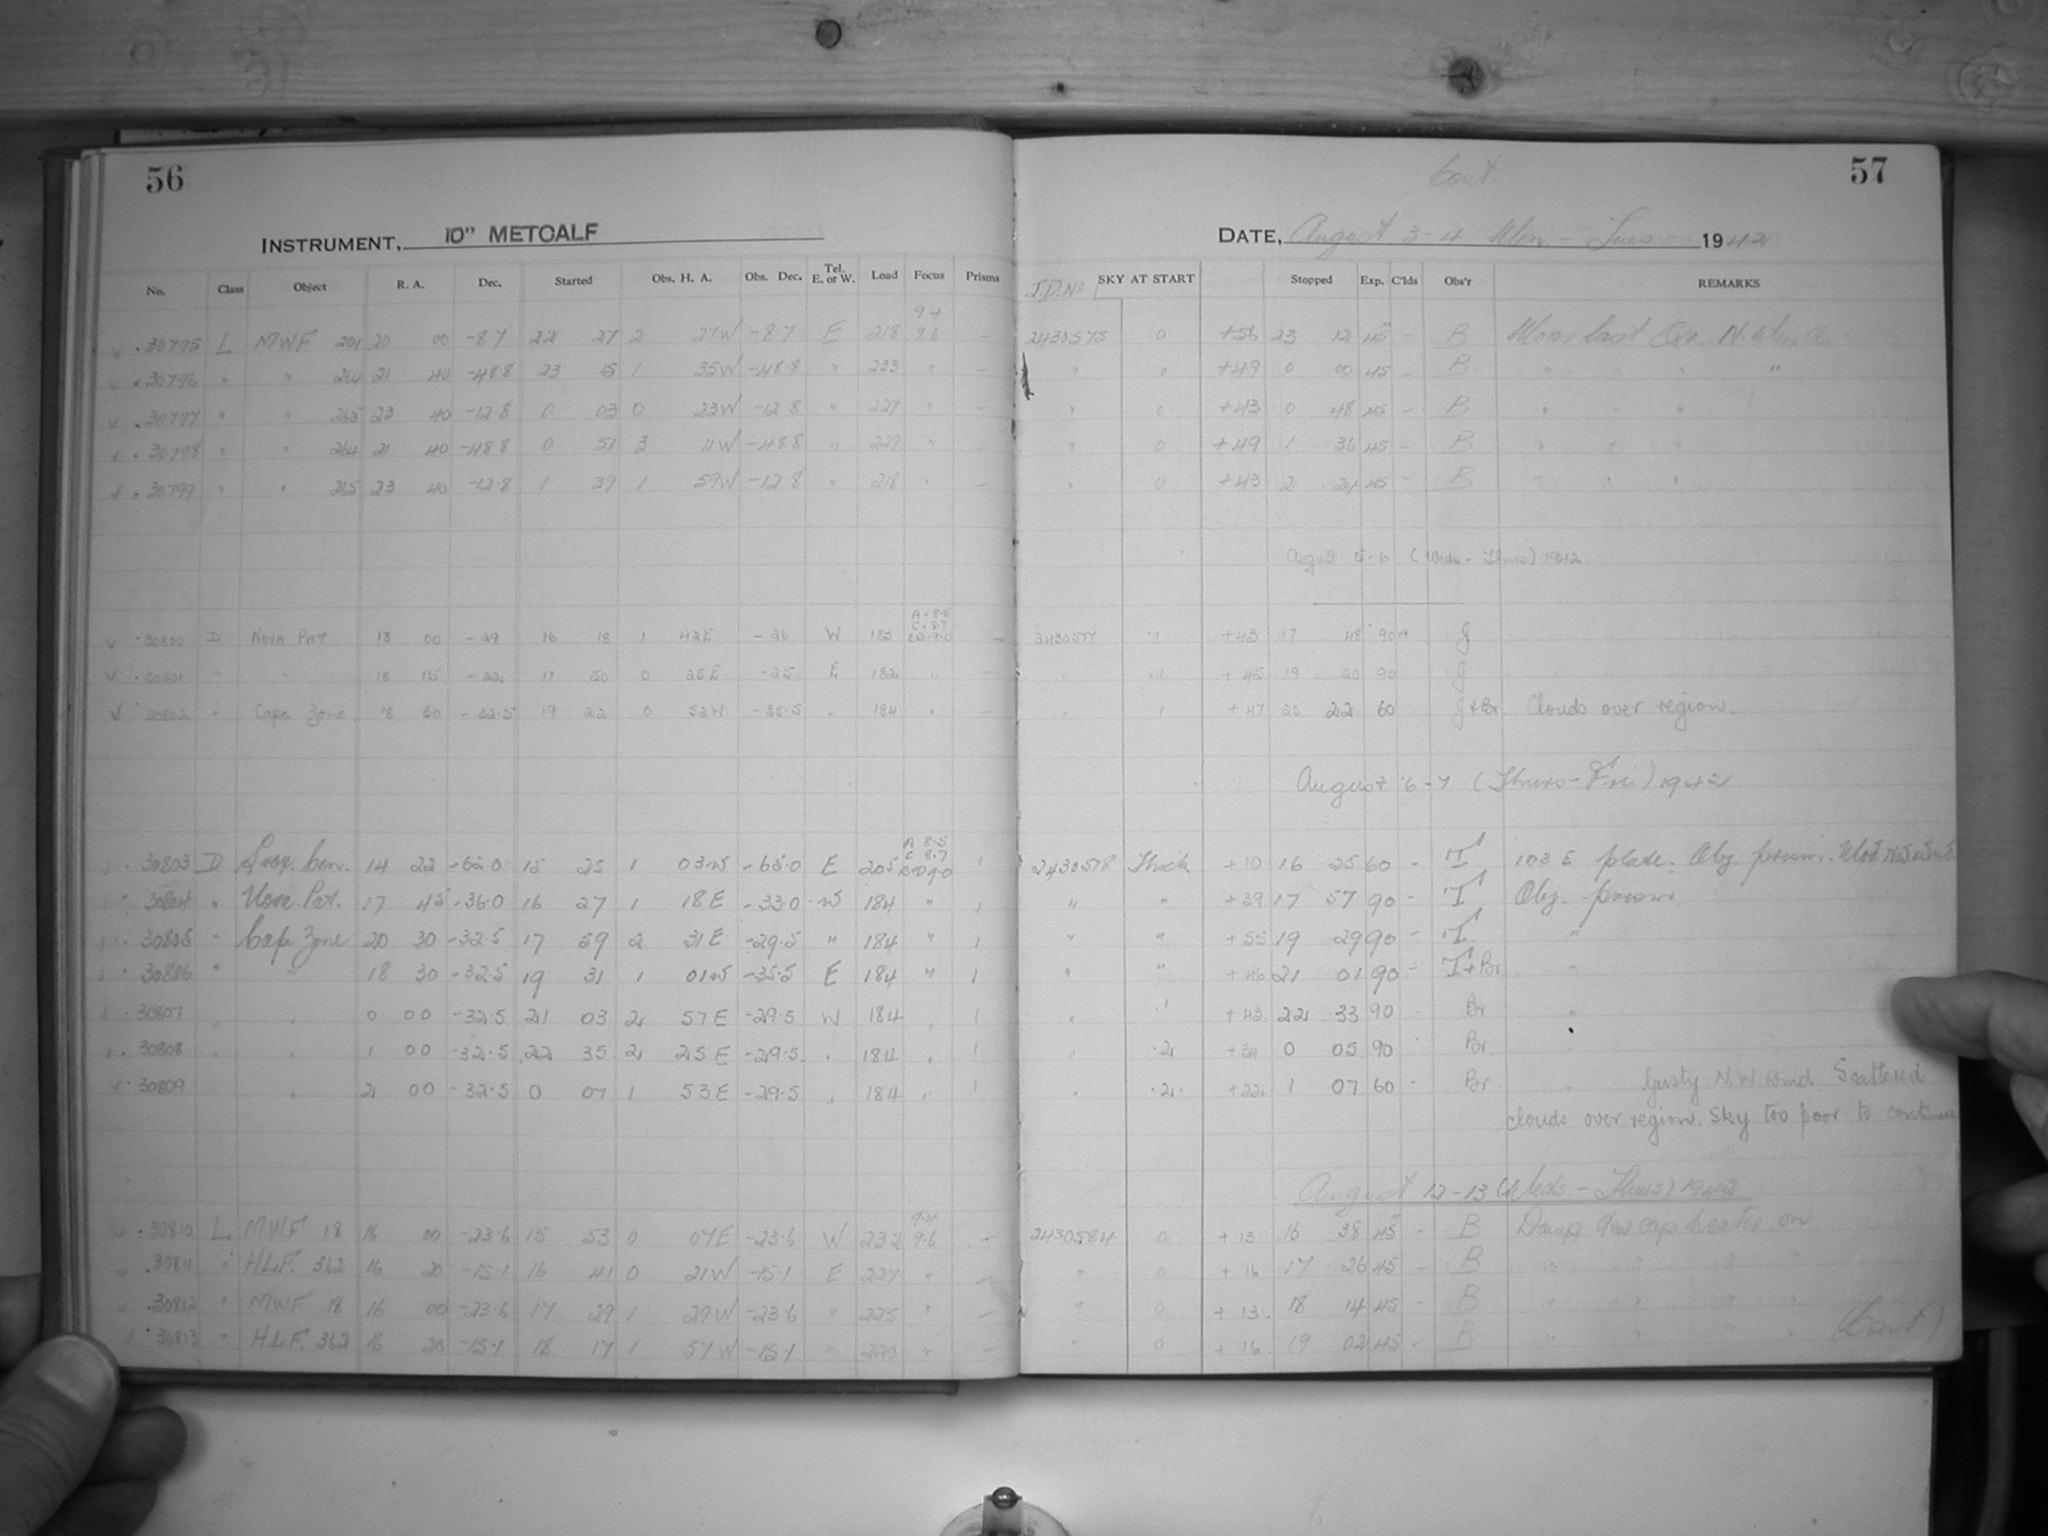 56
INSTRUMENT, 10" METCALF
No. Class Object R. A. Dec. Started Obs. H. A. Obs. Dec. Tel. E. or W. Load Focus Prisms
9.4
30795 L MWF 201 20 00 -8.7 22 27 2 27W -8.7 E 218 9.6 —
30796 " " 264 21 40 -48.8 23 15 1 35W -48.8 " 233 " —
30797 " " 265 23 40 -12.8 0 03 0 23W -12.8 " 227 " —
30798 " " 264 21 40 -48.8 0 51 3 11W -48.8 " 229 " —
30799 " " 265 23 40 -12.8 1 39 1 59W -12.8 " 218 " —
A 8.5
C 8.7
30800 D Nova Pup. 18 00 -29 16 18 1 42E -26 W 183 B D 9.0 —
30801 " " 18 15 -22 17 50 0 25E -25 E 182 " —
30802 " Cape Zone 18 30 -32.5 19 22 0 52W -35.5 " 184 " —
A 8.5
C 8.7
30803 D Prox. Cen. 14 22 -62.0 15 25 1 03W -65.0 E 205 B D 9.0 1
30804 " Nova Pup. 17 45 -36.0 16 27 1 18E -33.0 W 184 " 1
30805 " Cape Zone 20 30 -32.5 17 59 2 31E -29.5 " 184 " 1
30806 " " 18 30 -32.5 19 31 1 01W -35.5 E 184 " 1
30807 " " 0 00 -32.5 21 03 2 57E -29.5 W 184 " 1
30808 " " 1 00 -32.5 22 35 2 25E -29.5 " 184 " 1
30809 " 2 00 -32.5 0 07 1 53E -29.5 " 184 " 1
9.4
30810 L MWF 18 16 00 -23.6 15 53 0 07E -23.6 W 232 9.6 —
30811 " H.L.F. 362 16 20 -15.1 16 41 0 21W -15.1 E 227 " —
30812 " MWF 18 16 00 -23.6 17 29 1 29W -23.6 " 225 " —
30813 " H.L.F. 362 16 20 -15.1 18 17 1 57W -15.1 " 220 " —
Cont. 57
DATE, August 3-4 Mon - Tues 1942
J.D. No SKY AT START Stopped Exp. C'lds Obs'r REMARKS
2430575 0 +56 23 12 45m - B Moon last Qr.
" 0 +49 0 00 45 - B " " " "
" 0 +43 0 48 45 - B " " "
" 0 +49 1 36 45 - B " " "
" 0 +43 2 24 45 - B " " "
August 5-6 (Weds - Thurs) 1942
2430577 .1 +43 17 48 90m J
" .1 +45 19 20 90 J
" .1 +47 20 22 60 J+Br Clouds over region.
August 6-7 (Thurs - Fri) 1942
2430578 Thick +10 16 25 60 - T 103 E plate. Obj. prism.
" " +39 17 57 90 - T Obj. prism
" " +55 19 29 90 - T "
" " +46 21 01 90 - T+Br "
" .1 +43 22 33 90 - Br "
" .2 0 05 90 - Br "
" .2 +22 1 07 60 - Br " Gusty N.W wind Scattered
clouds over region. Sky too poor to continue
August 12-13 (Weds - Thurs) 1942
2430584 0 +13 16 38 45m - B Damp dew cap heater on
" 0 +16 17 26 45 - B " " " "
" 0 +13 18 14 45 - B " " " "
" 0 +16 19 02 45 - B " " " "
(Cont)